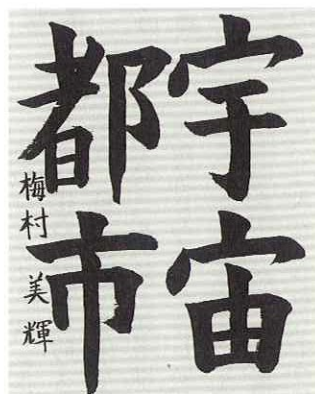 宇宙
都市
梅村 美輝